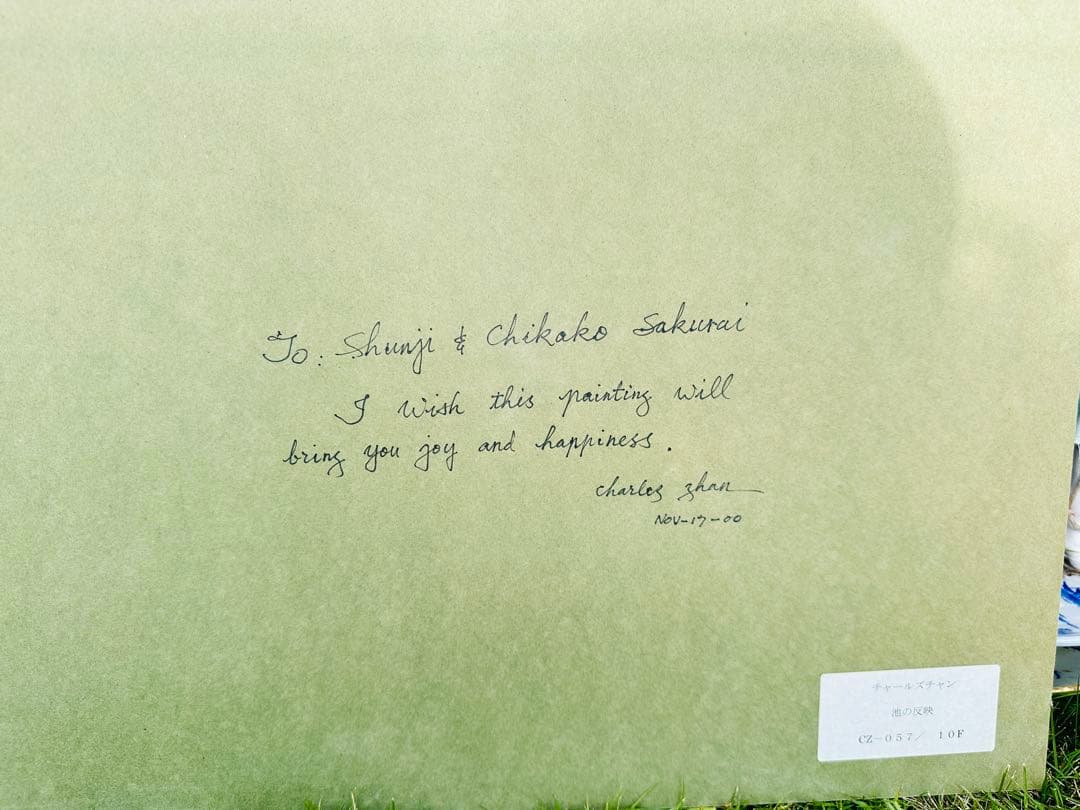 To: Shunji & Chikako Sakurai
I wish this painting will
bring you joy and happiness.
Charles Zhan
NOV-17-00
チャールズチャン
池の反映
CZ-057/ 10F